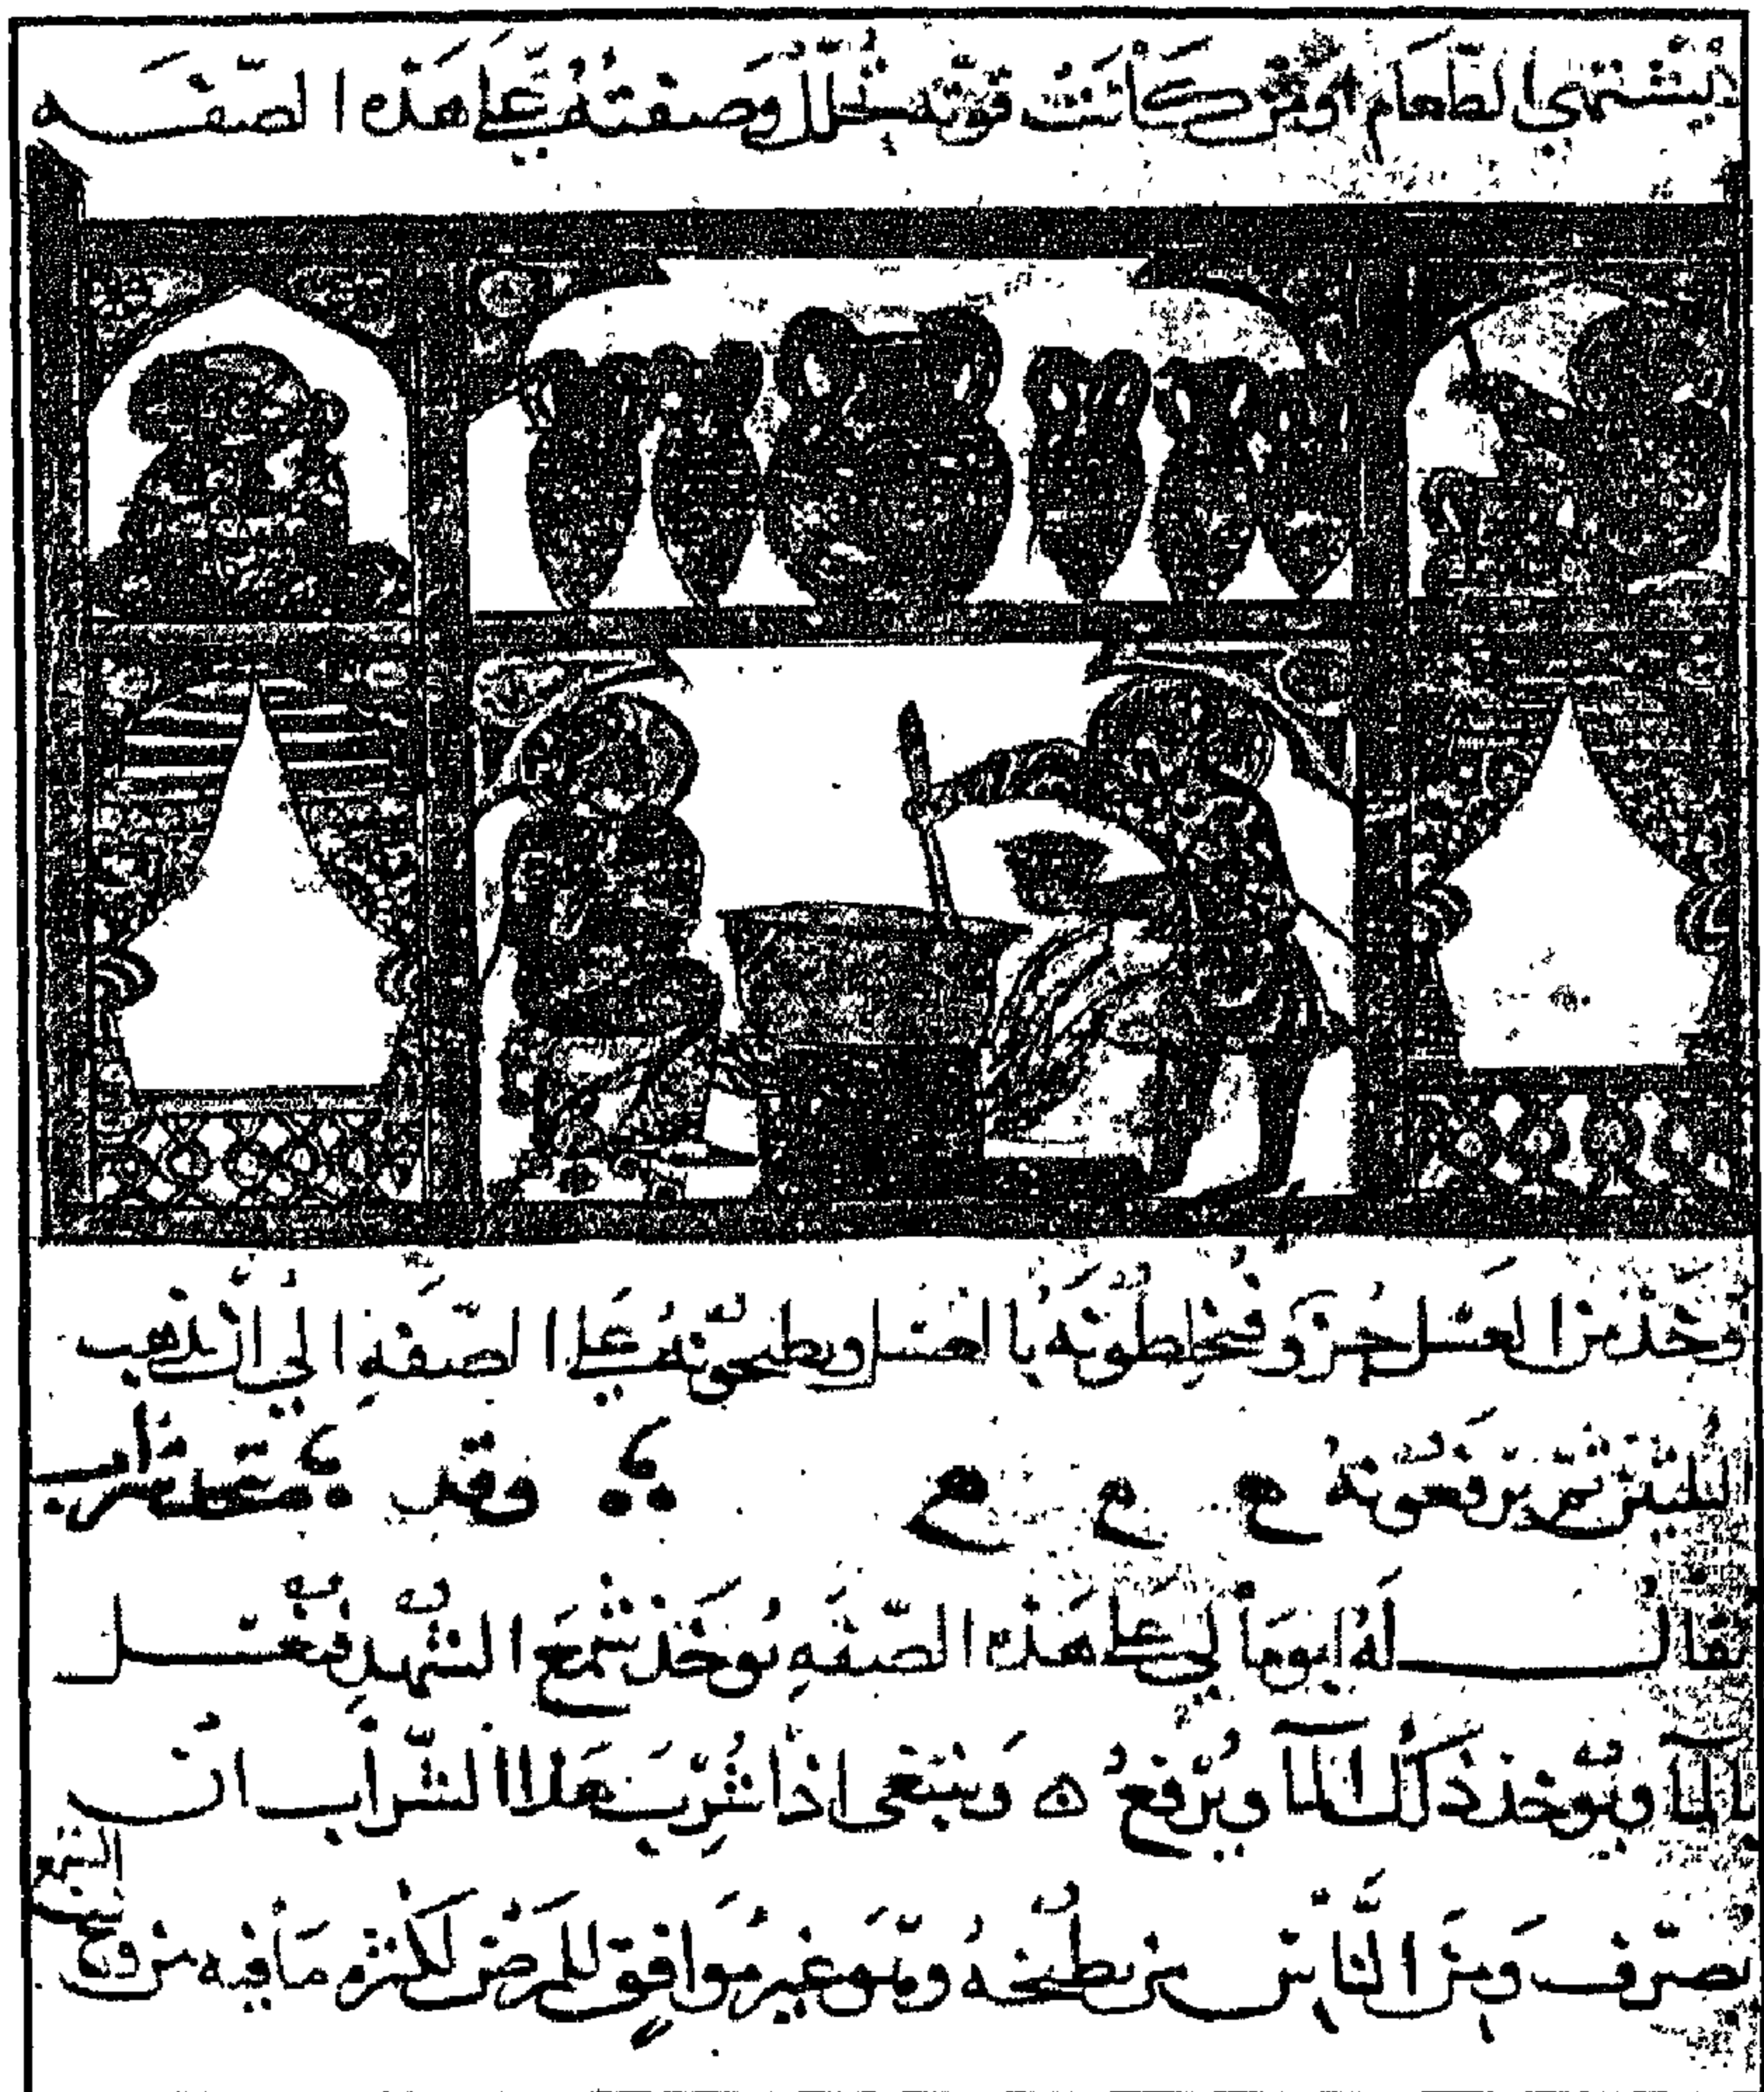 يشتهي الطعام او من كانت قوته تحلل وصفته على هذه الصفه
وخذ من العسل جزو فتخلطونه بالعسل ويطبخونه على الصفه الي ان يذهب
الثلثين ثم يرفعونه وقد يعمل شراب
يقال له ايومالي على هذه الصفه يوخذ شمع الشهد فيغسل
بالمآ ويوخذ ذلك المآ ويرفع ه وينبغي اذا شرب هذا الشراب ان
يصرف ومن الناس من يطبخه وهو غير موافق للمرضى لكثره ما فيه من وسخ
الشمع